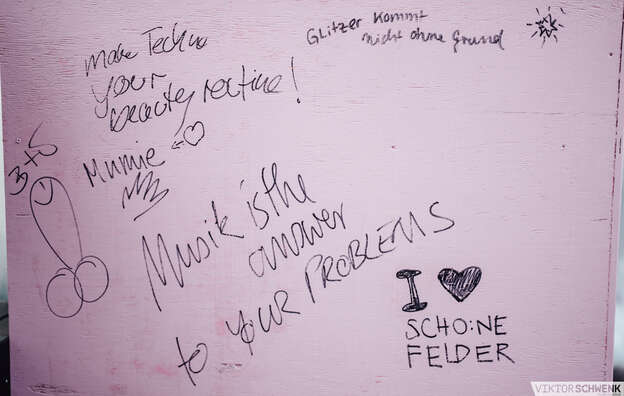 Make Techno
your
beauty routine!
Glitzer kommt
nicht ohne Grund
3+5
Mumie
Musik is the
answer
to your PROBLEMS
I ♥
SCHO:NE
FELDER
VIKTORSCHWENK